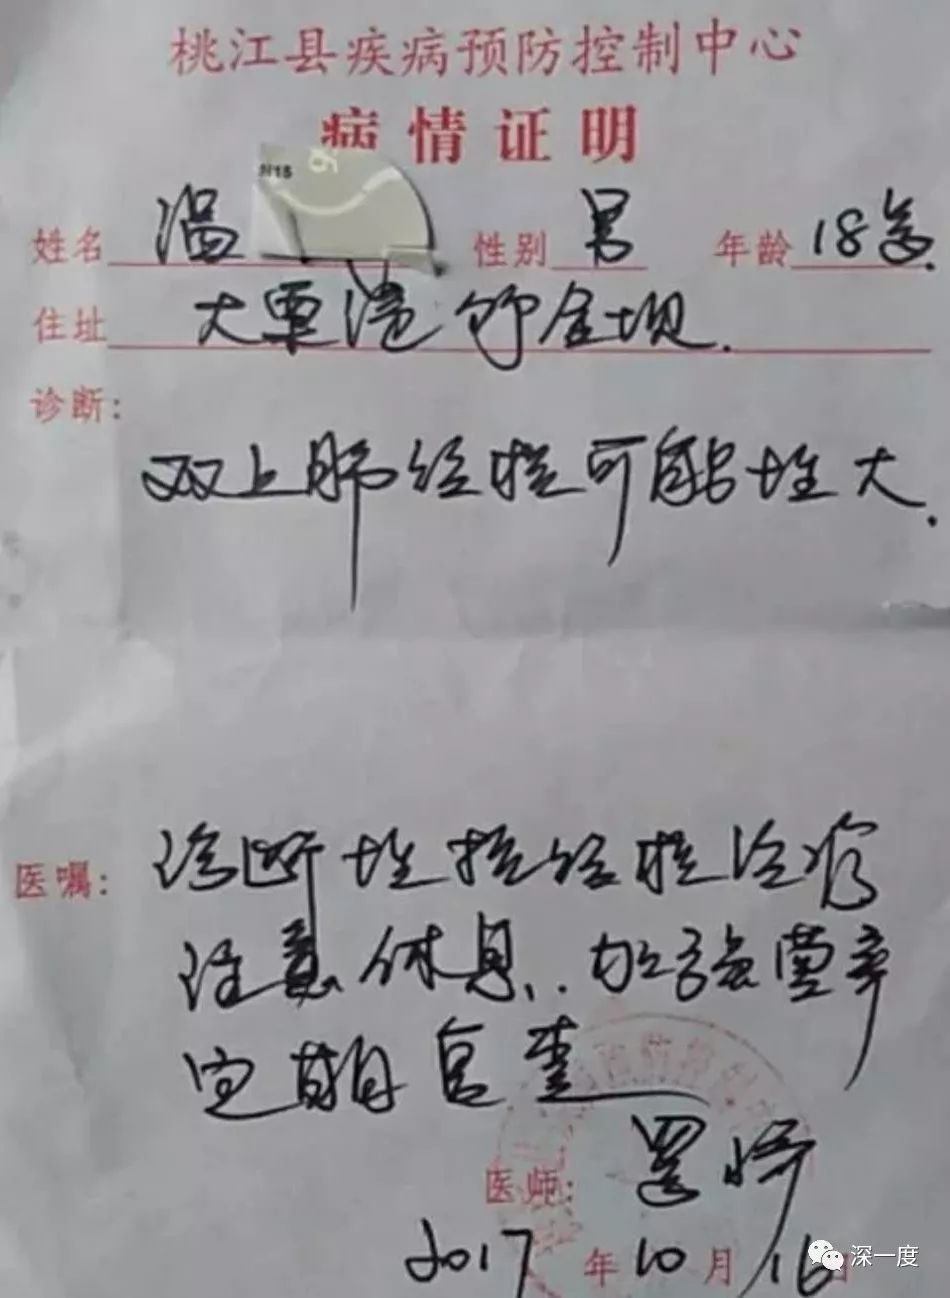 桃江县疾病预防控制中心
病情证明
姓名 温 性别 男 年龄 18岁.
住址 大栗港
诊断:
双上肺结核可能性大.
医嘱:
诊断性抗结核治疗
注意休息, 加强营养
定期复查
医师:
2017年10月16日
深一度